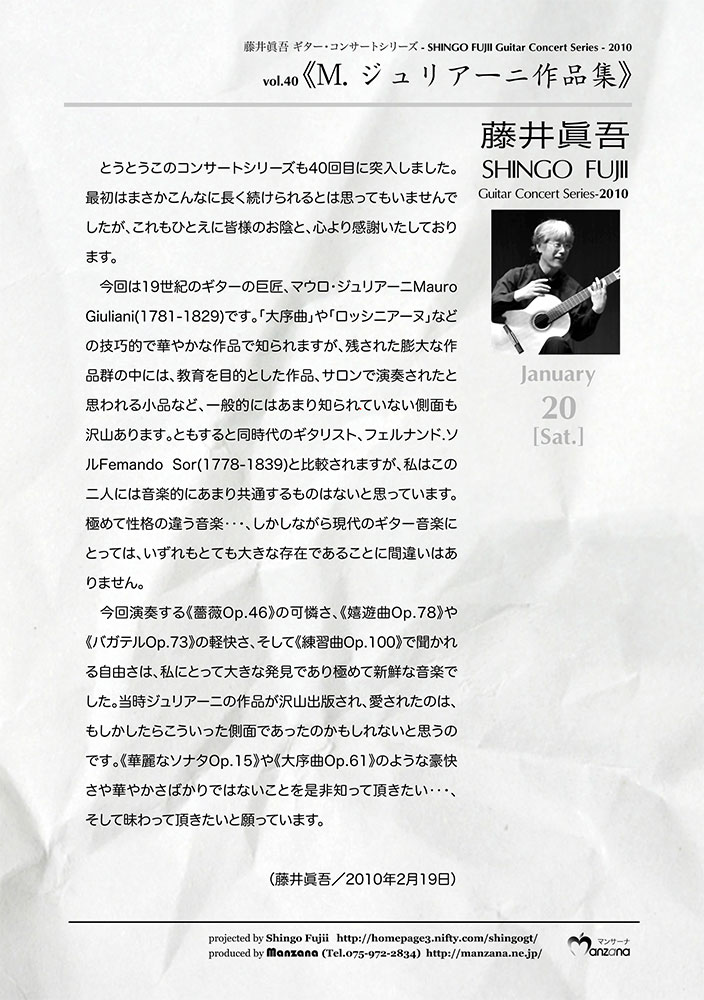 藤井眞吾 ギター・コンサートシリーズ - SHINGO FUJII Guitar Concert Series - 2010
vol.40《M. ジュリアーニ作品集》
藤井眞吾
SHINGO FUJII
Guitar Concert Series-2010
January
20
[Sat.]
とうとうこのコンサートシリーズも40回目に突入しました。
最初はまさかこんなに長く続けられるとは思ってもいませんで
したが、これもひとえに皆様のお陰と、心より感謝いたしており
ます。
今回は19世紀のギターの巨匠、マウロ・ジュリアーニMauro
Giuliani(1781-1829)です。「大序曲」や「ロッシニアーヌ」など
の技巧的で華やかな作品で知られますが、残された膨大な作
品群の中には、教育を目的とした作品、サロンで演奏されたと
思われる小品など、一般的にはあまり知られていない側面も
沢山あります。ともすると同時代のギタリスト、フェルナンド.ソ
ルFemando Sor(1778-1839)と比較されますが、私はこの
二人には音楽的にあまり共通するものはないと思っています。
極めて性格の違う音楽･･･、しかしながら現代のギター音楽に
とっては、いずれもとても大きな存在であることに間違いはあ
りません。
今回演奏する《薔薇Op.46》の可憐さ、《嬉遊曲Op.78》や
《バガテルOp.73》の軽快さ、そして《練習曲Op.100》で聞かれ
る自由さは、私にとって大きな発見であり極めて新鮮な音楽で
した。当時ジュリアーニの作品が沢山出版され、愛されたのは、
もしかしたらこういった側面であったのかもしれないと思うの
です。《華麗なソナタOp.15》や《大序曲Op.61》のような豪快
さや華やかさばかりではないことを是非知って頂きたい･･･、
そして味わって頂きたいと願っています。
（藤井眞吾／2010年2月19日）
projected by Shingo Fujii http://homepage3.nifty.com/shingogt/
produced by Manzana (Tel.075-972-2834) http://manzana.ne.jp/
マンサーナ
Manzana